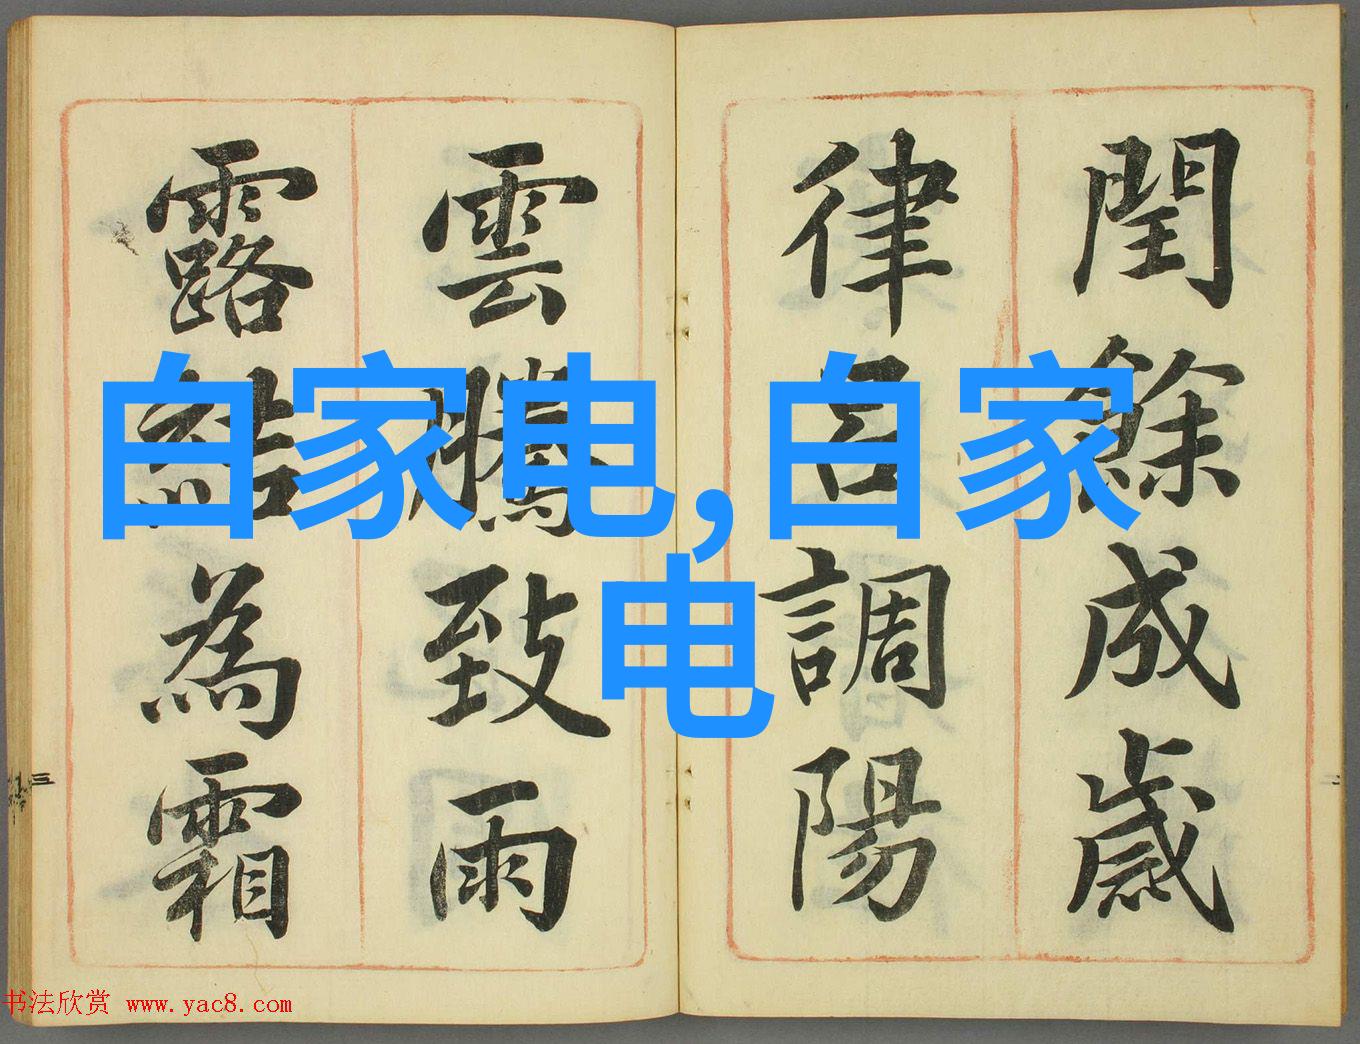 閏餘成歲
律呂調陽
雲騰致雨
露結為霜
白家电,白家
电
三
书法欣赏 www.yac8.com